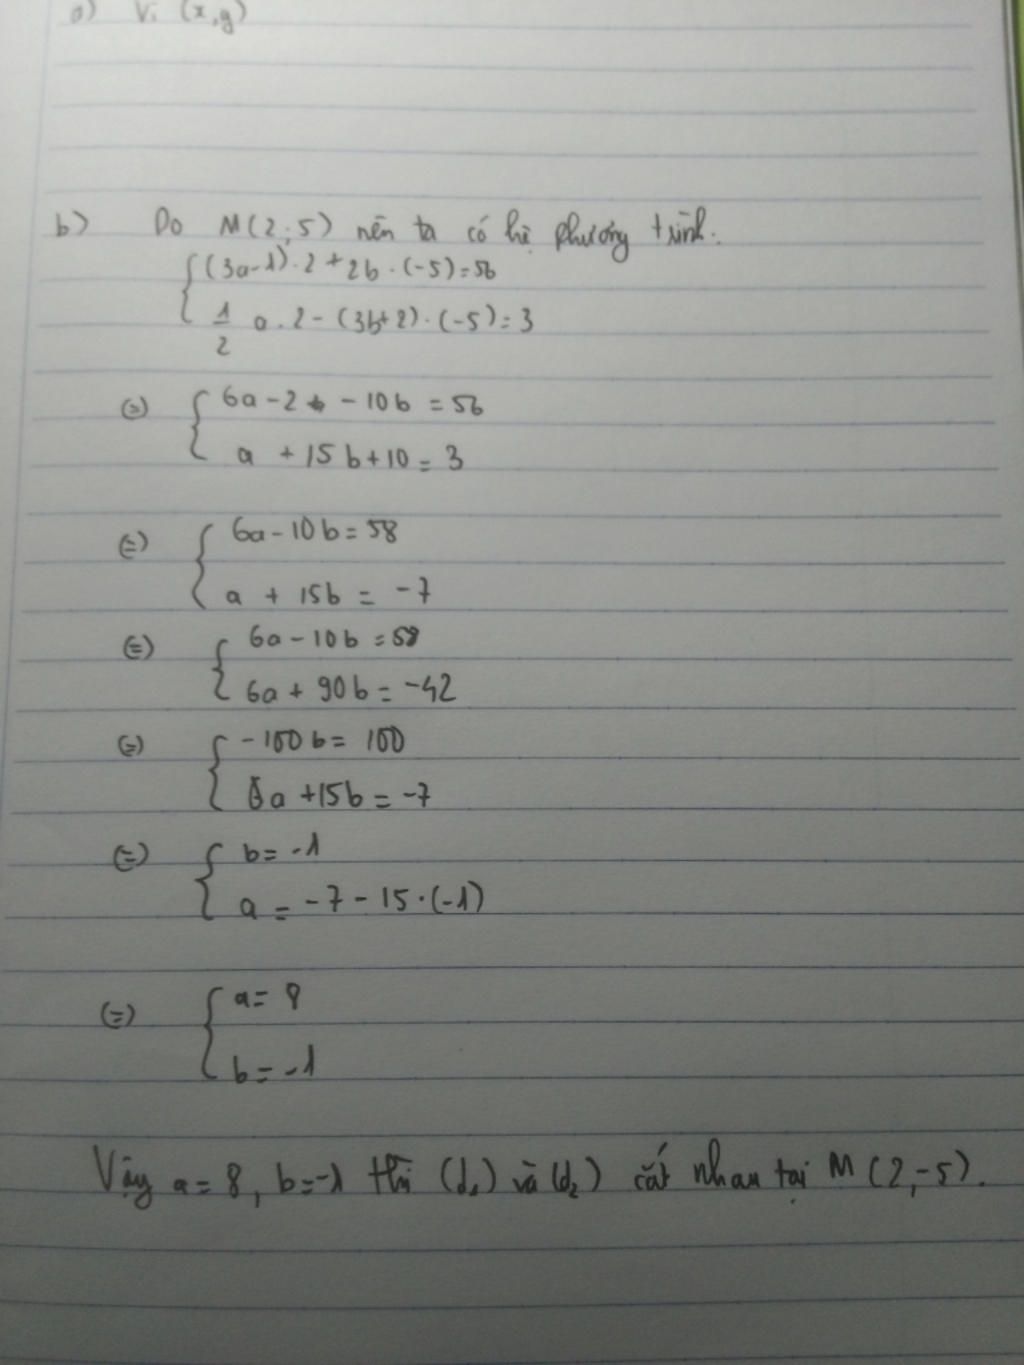 a) Vì (x,y)
b) Do M(2;5) nên ta có hệ phương trình.
(3a-1).2+2b.(-5)=56
1/2 a.2-(3b+2).(-5)=3
(=) 6a-2 -10b=56
a+15b+10=3
(=) 6a-10b=58
a+15b=-7
(=) 6a-10b=58
6a+90b=-42
(=) -100b=100
a+15b=-7
(=) b=-1
a=-7-15.(-1)
(=) a=8
b=-1
Vậy a=8, b=-1 thì (d₁) và (d₂) cắt nhau tại M(2,-5).